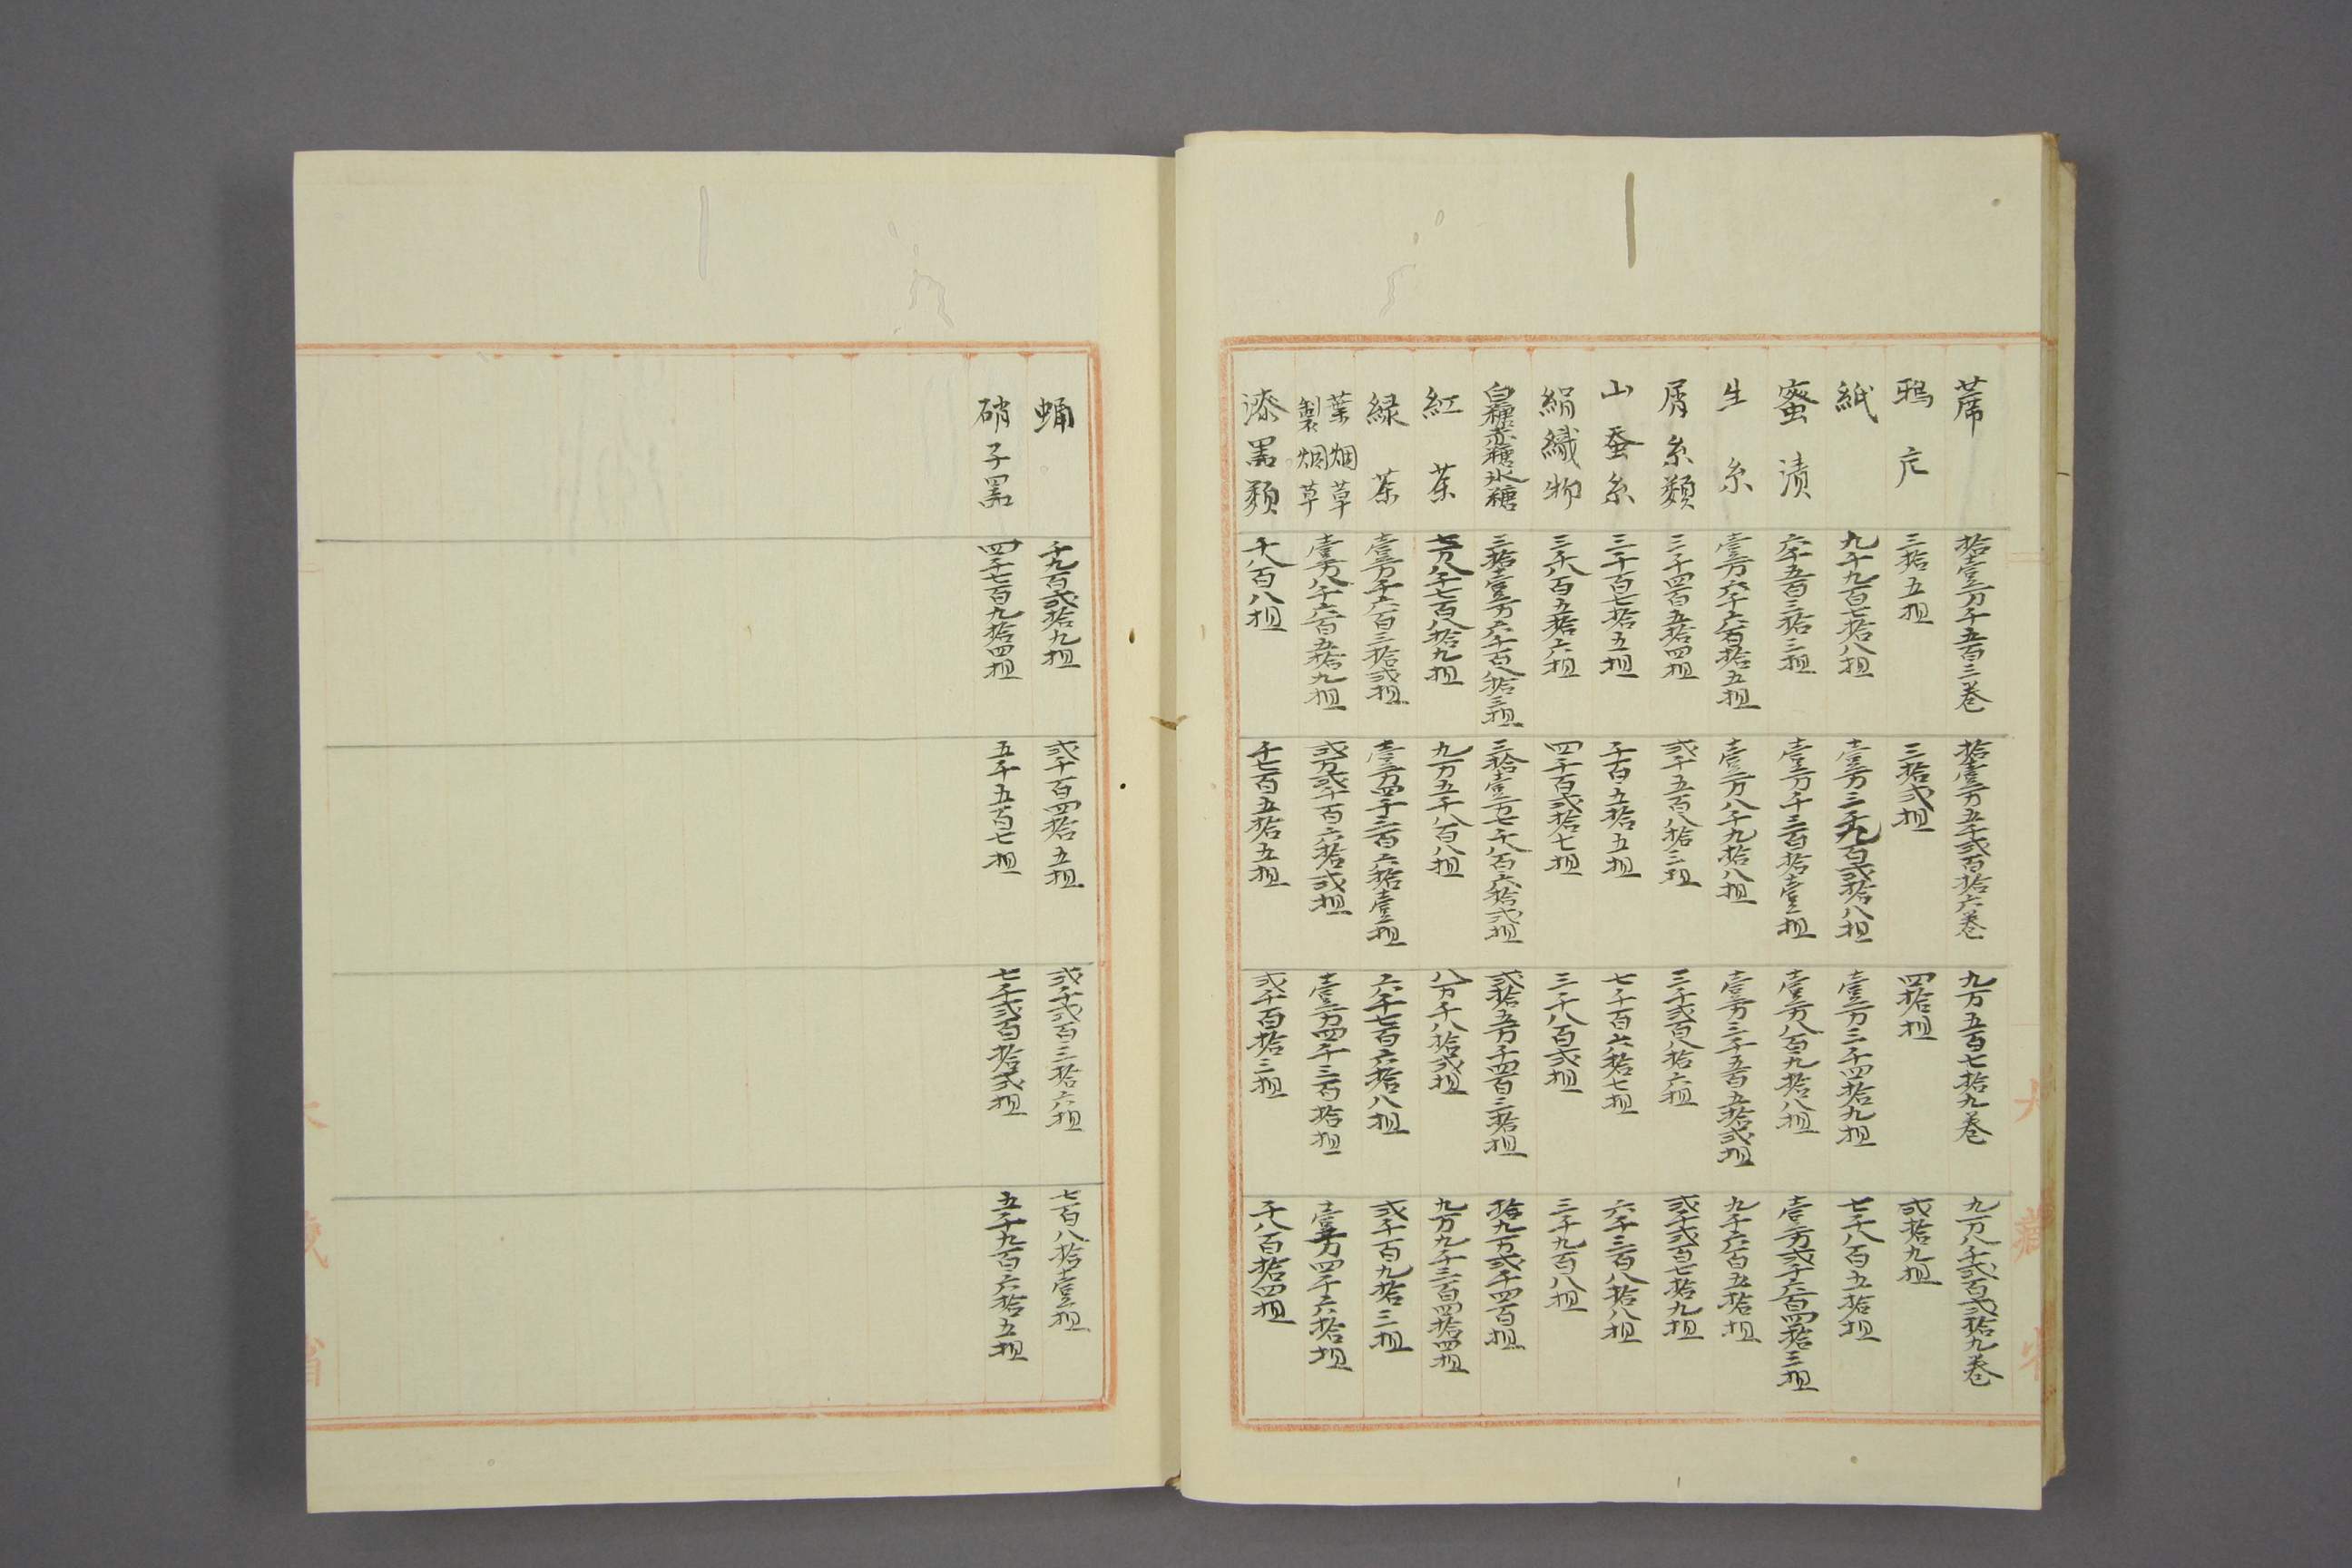 蓆 拾壹万千五百三巻 拾壹万五千弐百拾六巻 九万五百七拾九巻 九万八千弐百弐拾九巻
鴉片 三拾五担 三拾弐担 四拾担 弐拾九担
紙 九千九百七拾八担 壹万三千九百弐拾八担 壹万三千四拾九担 七千八百五拾担
蜜漬 六千五百三拾三担 壹万千三百拾壹担 壹万八百九拾八担 壹万弐千六百四拾三担
生糸 壹万六千六百拾五担 壹万八千九拾八担 壹万三千五百五拾弐担 九千六百五拾担
屑糸類 三千四百五拾四担 弐千五百八拾三担 三千弐百八拾六担 弐千弐百七拾九担
山蚕糸 三千百七拾五担 千百五拾五担 七千百六拾七担 六千三百八拾八担
絹織物 三千八百五拾六担 四千百弐拾七担 三千八百弐担 三千九百八担
白糖赤糖氷糖 三拾壹万六千百八拾三担 三拾壹万七千八百六拾弐担 弐拾五万千四百三拾担 拾九万弐千四百担
紅茶 七万八千七百八拾九担 九万五千八百八担 八万千八拾弐担 九万九千三百四拾四担
緑茶 壹万千六百三拾弐担 壹万四千三百六拾壹担 六千七百六拾八担 弐千百九拾三担
葉烟草 製烟草 壹万八千六百五拾九担 弐万弐千百六拾弐担 壹万四千三百拾担 壹万四千六拾担
漆器類 千八百八担 千七百五拾五担 弐千百拾三担 千八百拾四担
大蔵省
蛹 千九百弐拾九担 弐千百四拾五担 弐千弐百三拾六担 七百八拾壹担
硝子器 四千七百九拾四担 五千五百七担 七千弐百拾弐担 五千九百六拾五担
大蔵省